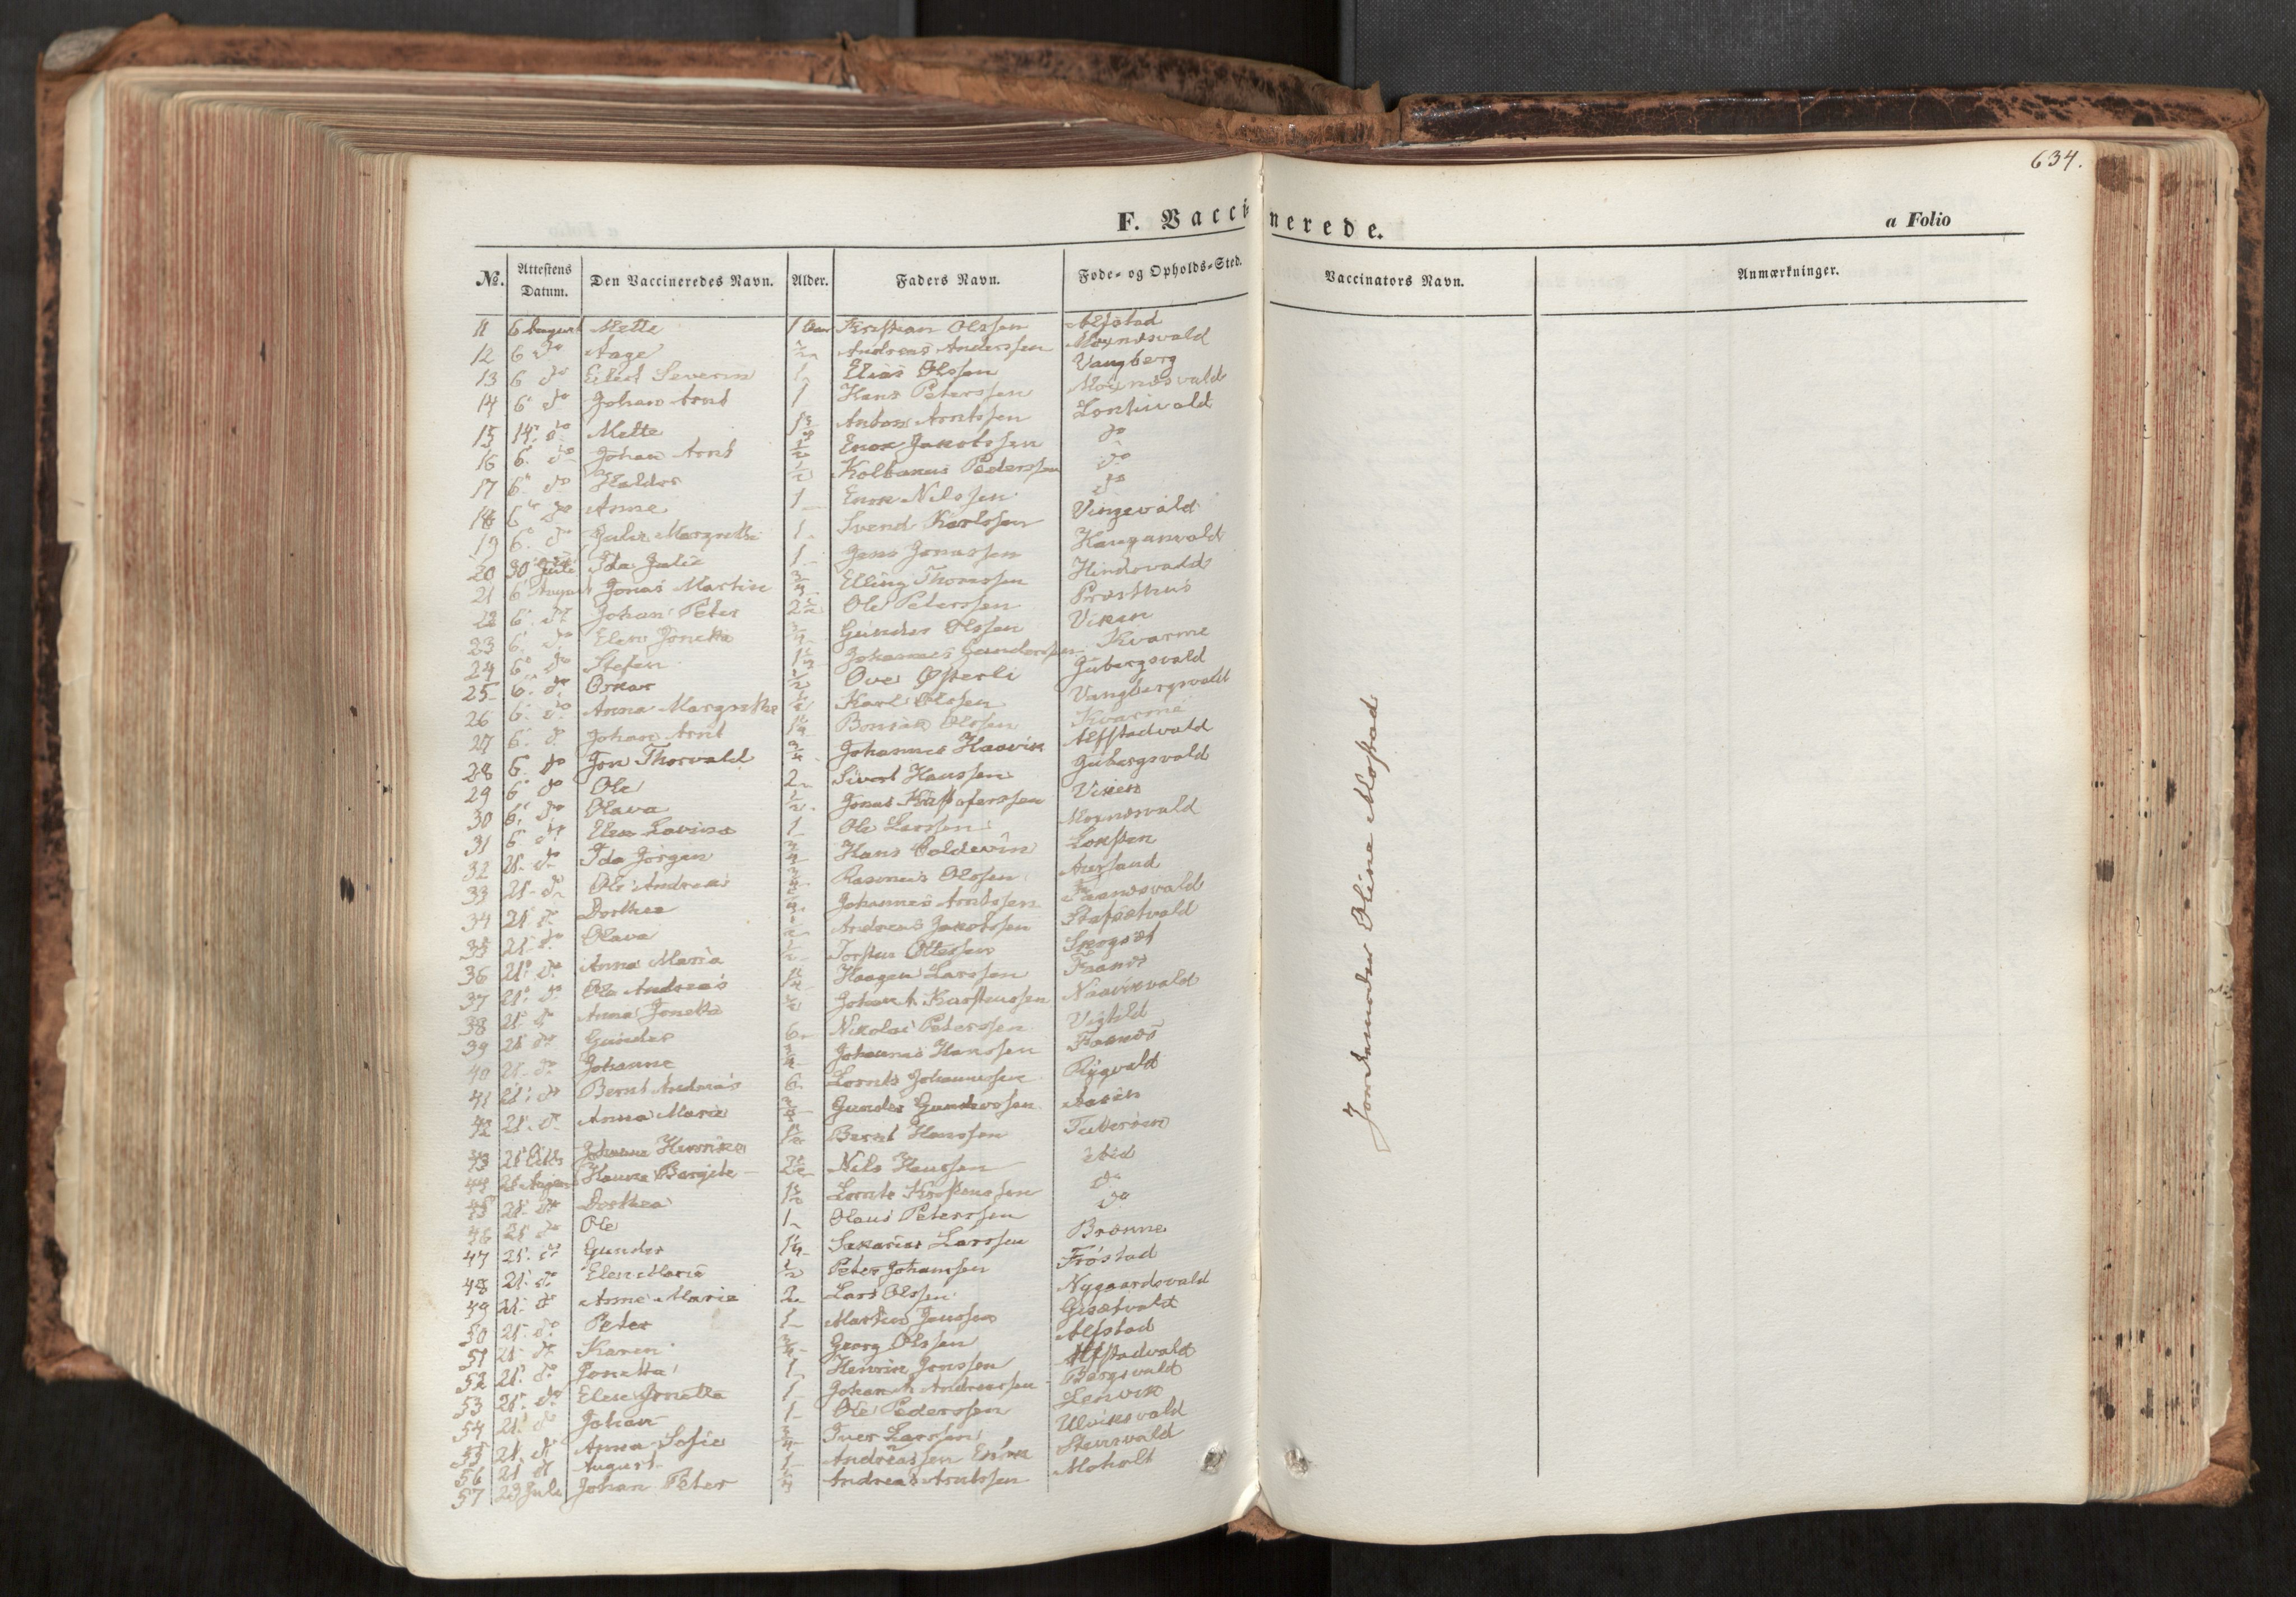 634.
F. Vaccinerede.
a Folio
No. Attestens Datum. Den Vaccineredes Navn. Alder. Faders Navn. Føde- og Opholds-Sted. Vaccinators Navn. Anmærkninger.
11 6 August Mette 1 Aar Kristian Olssen Alfstad
12 6 do Aage ½ Andreas Anderssen Moxnesvald
13 6 do Eilert Severin 1 Elias Olssen Vangberg
14 6 do Johan Arnt 1 Hans Peterssen Moxnesvald
15 14 do Mette 1½ Anton Arntssen
16 6 do Johan Arnt ½ Enok Jakobssen do
17 6 do Haldor ½ Kolbanus Pederssen do
18 6 do Anne 1 Enok Nilssen do
19 6 do Julie Margrethe 1 Svend Karlssen Vingevald
20 30 Juli Ida Julie 1 Jens Jonassen Hauganvald
21 6 August Jonas Martin ¾ Elling Thomssen Hindsvald
22 6 do Johan Peter 2½ Ole Peterssen Præsthus
23 6 do Elen Jonetta ¾ Gunder Olssen Viken
24 6 do Stefen 1½ Johannes Gunderssen Kvarme
25 6 do Oskar ½ Ove Østerli Gubergsvald
26 6 do Anna Margrethe ½ Karl Olssen Vangbergsvald
27 6 do Johan Arnt 1¼ Bonsak Olssen Kvarme
28 6 do Jon Thorvald ¾ Johannes Haavik Alfstadvald
29 6 do Ole 2 Sivert Hanssen Gubergsvald
30 6 do Olava ½ Jonas Kristoferssen Viken
31 6 do Elen Lovise 1 Ole Larssen Moxnesvald
32 21 do Ida Jørgin ¾ Hans Coldevin
33 21 do Ole Andreas ¾ Rasmus Olssen Aursand
34 21 do Dorthea ¾ Johannes Arntssen
35 21 do Olava ½ Andreas Jakobssen
36 21 do Anna Maria ½ Torsten Ottessen Skogset
37 21 do Ole Andreas 1½ Haagen Larssen
38 21 do Anna Jonetta ½ Johan A Karstenssen
39 21 do Gunder 6 Nikolai Peterssen
40 21 do Johanne ¾ Johannes Hanssen
41 21 do Bernt Andreas 6 Lornts Johannessen
42 21 do Anna Marie ¾ Gunder Gunderssen
43 21 Johanne Henrikka 1½ Bernt Hanssen
44 21 August Hanna Bergite 2½ Nils Hanssen ibid
45 21 do Dorthea 1½ Lornts do
46 21 do Ole 1 Olaus Peterssen do
47 21 do Gunder 1¼ Sakarias Larssen Brønne
48 21 do Elen Marie ½ Peter Johanssen Frøstad
49 21 do Anne Marie 2 Lars Olssen Nygaardsvald
50 21 do Peter 1 Martin Janssen Gisætvald
51 21 do Karen ¾ Georg Olssen Alfstad
52 21 do Jonetta 1 Henrik Jonssen Alfstadvald
53 21 do Elen Jonetta 1 Johan A Andreassen Bergsvald
54 21 do Johan 1 Ole Pederssen Lenvik
55 21 do Anna Sofie ¾ Iver Larssen Ulviksvald
56 21 do August 1 Andreassen
57 23 Juli Johan Peter Andreas Arntssen Moholt
Jordemoder Oline Mostad